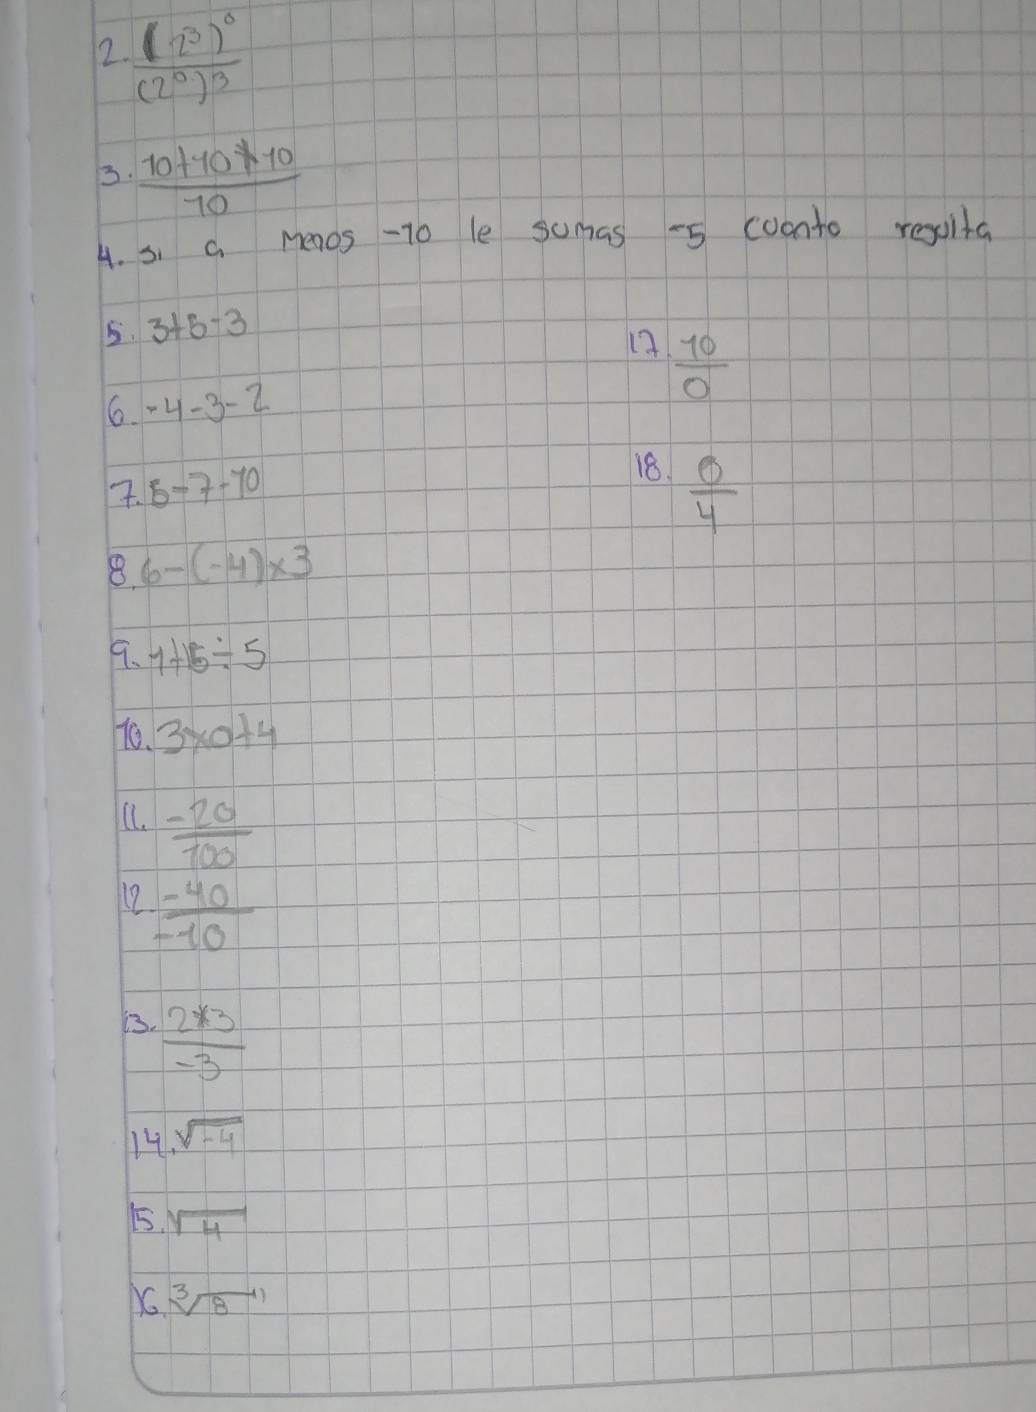 2. (2³)⁰
(2⁰)³
3. 10+10*10
10
4. si a menos -10 le sumas -5 cuanto resulta
5. 3+5-3
17. 10
0
6. -4-3-2
18. 0
4
7. 5-7-10
8. 6-(-4)×3
9. 1+15÷5
10. 3×0+4
11. -20
100
12 -40
-10
13. 2*3
-3
14. √-4
15. √4
16. ³√8